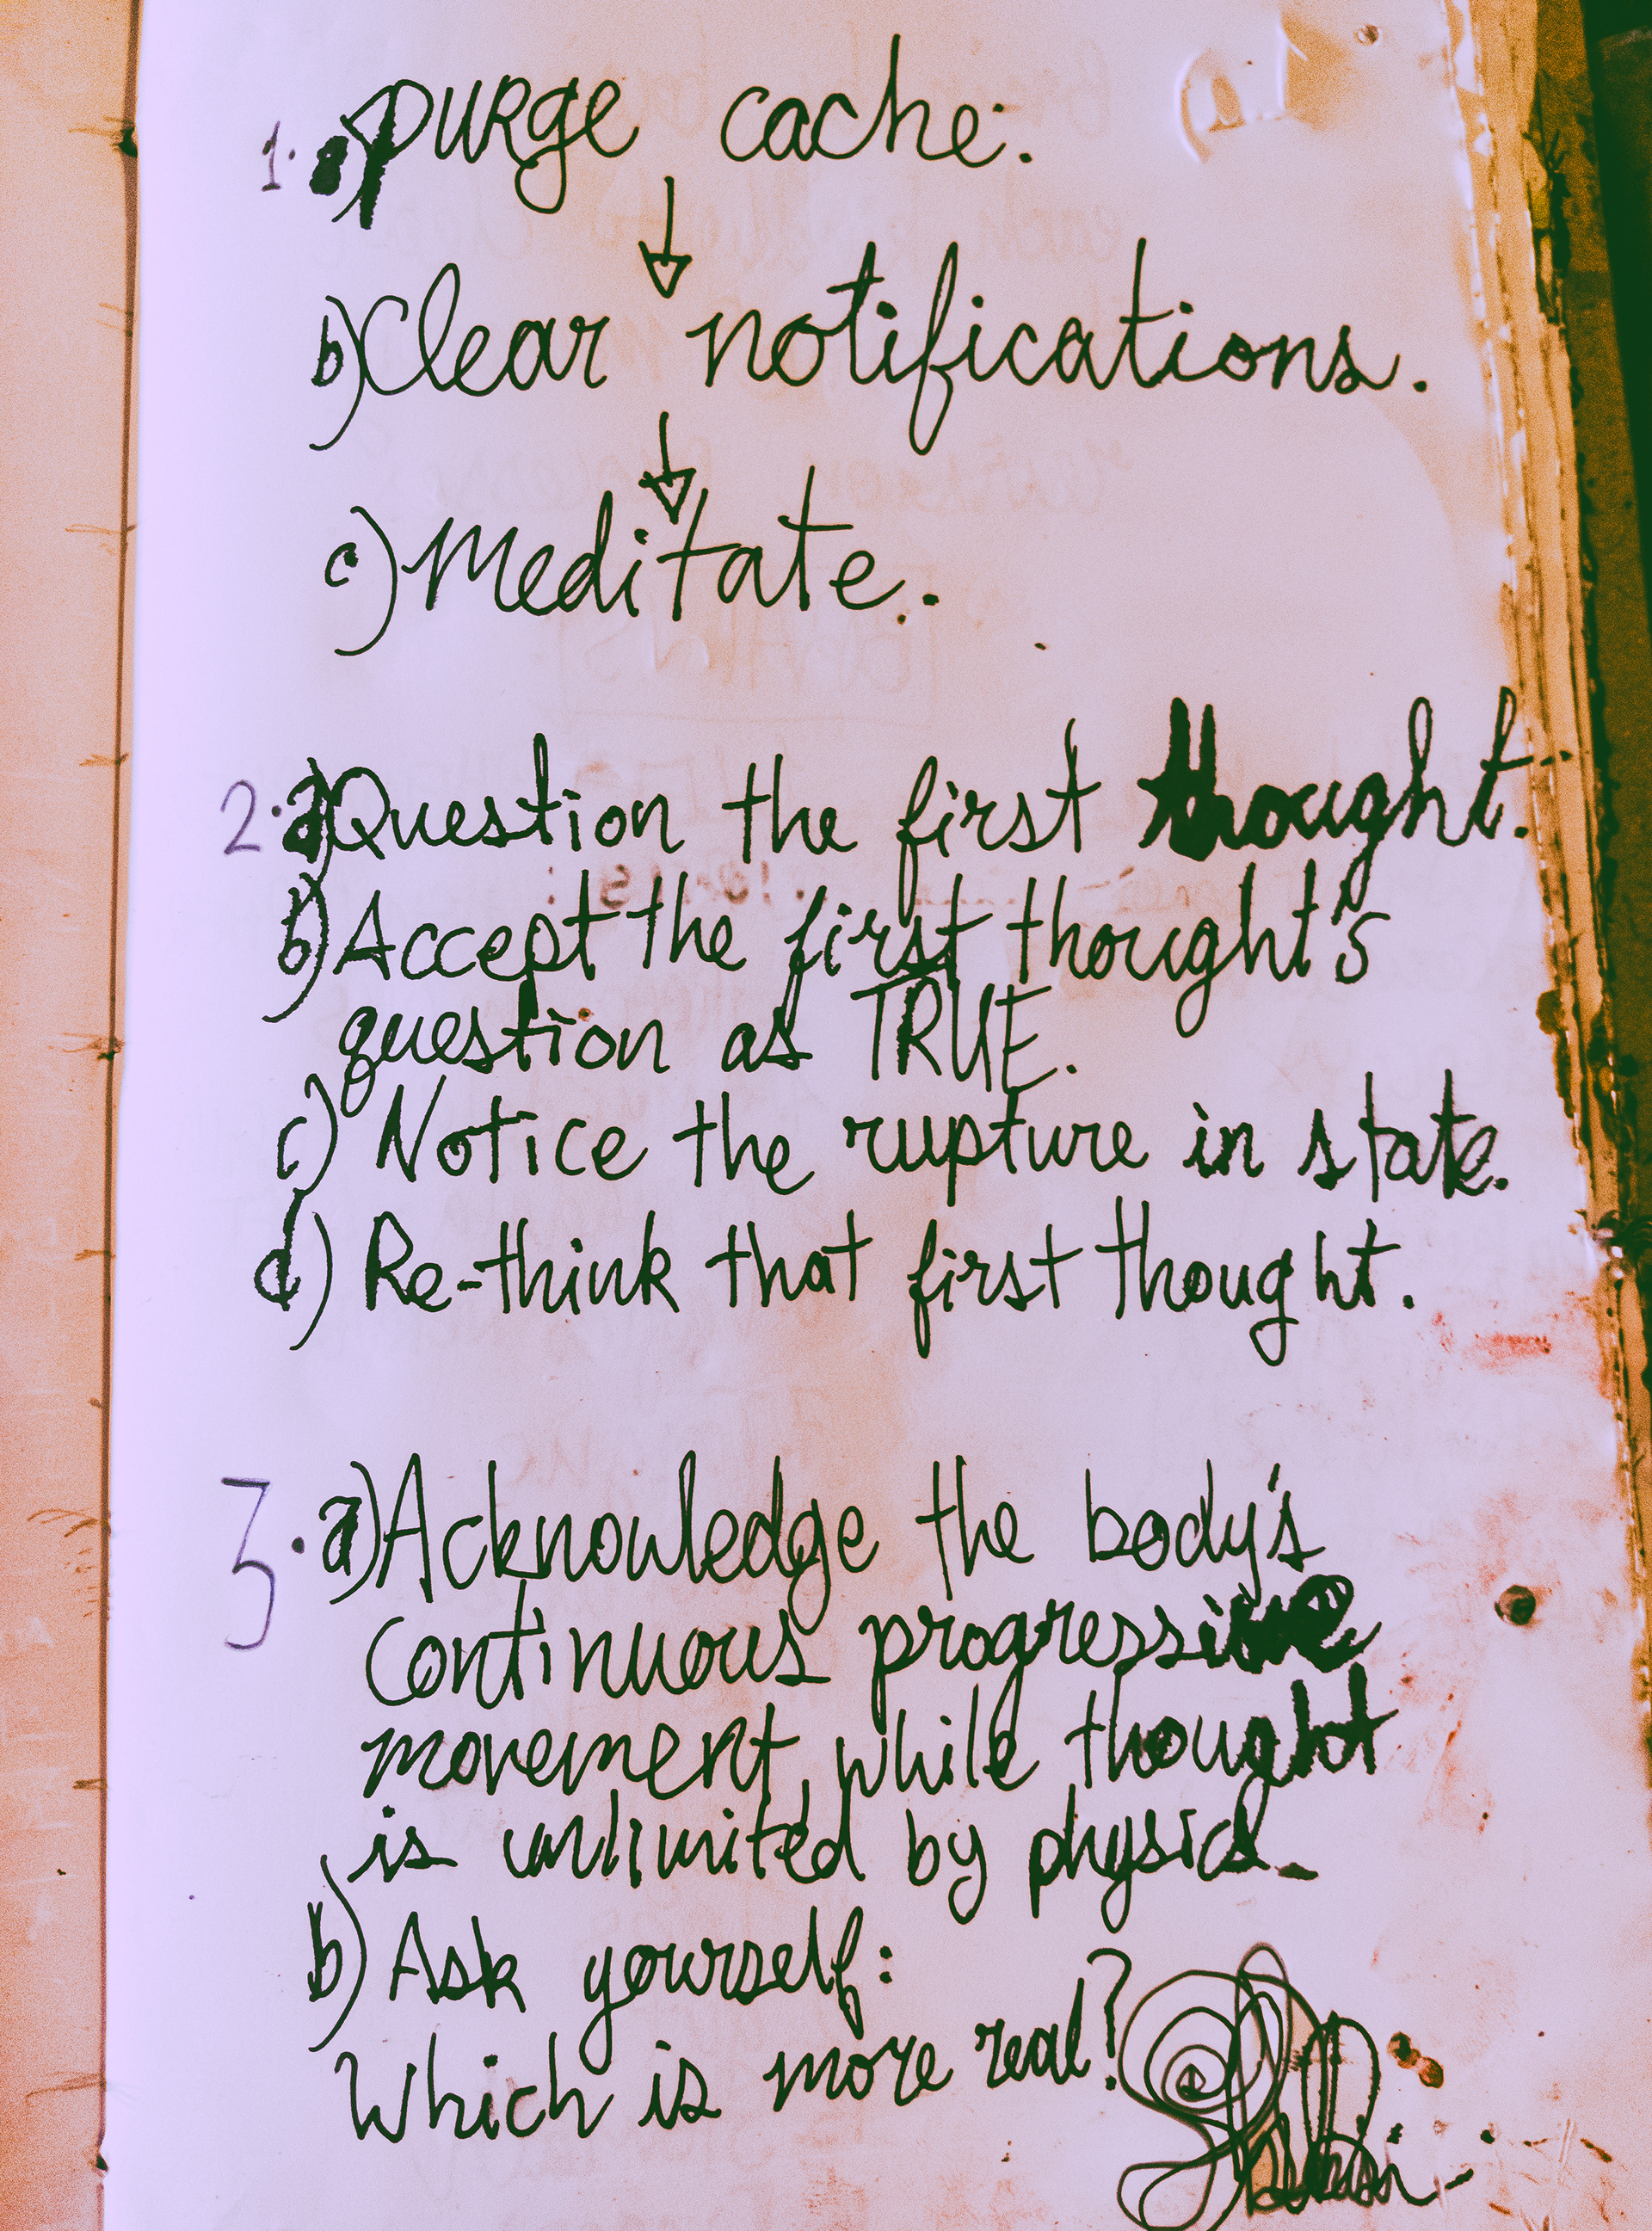 1. a) PURge cache:
b) Clear notifications.
c) Meditate.
2. a) Question the first thought.
b) Accept the first thought's
question as TRUE.
c) Notice the rupture in state.
d) Re-think that first thought.
3. a) Acknowledge the body's
continuous progressive
movement, while thought
is unlimited by physics.
b) Ask yourself:
Which is more real?